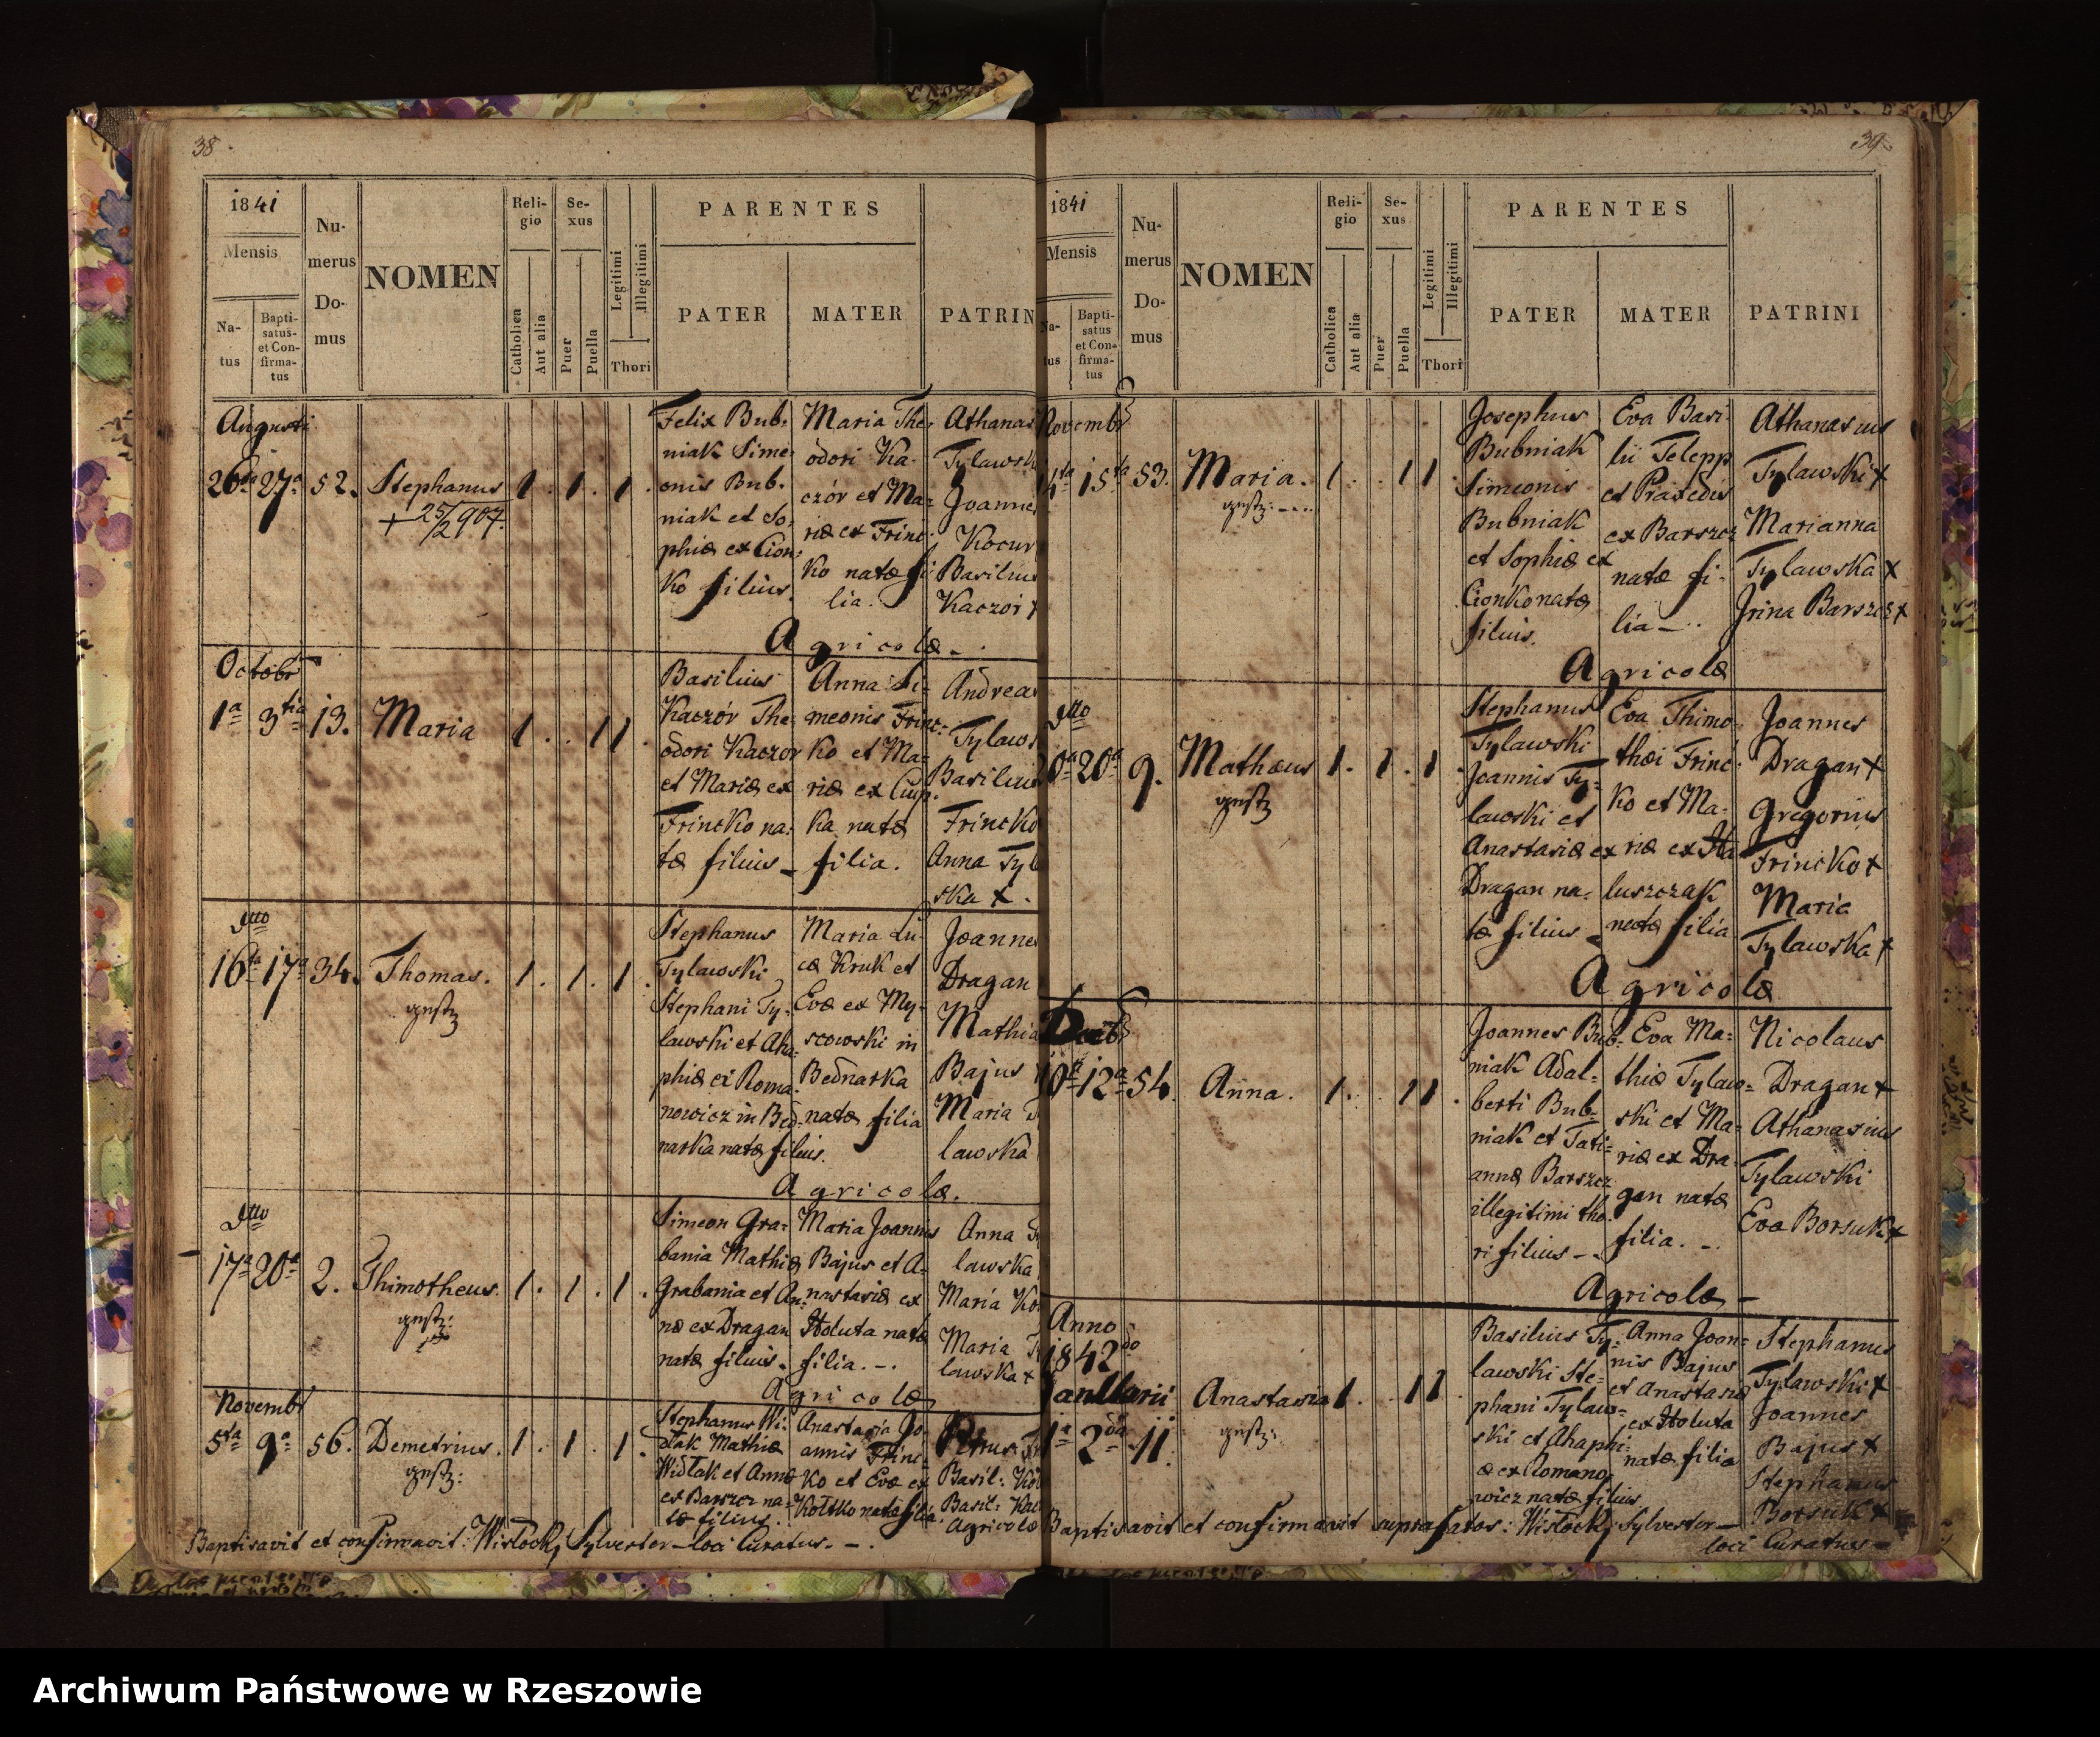 38.
1841
Mensis
Na-
tus
Bapti-
satus-
et Con-
firma-
tus
Nu-
merus
Do-
mus
NOMEN
Reli-
gio
Catholica
Aut alia
Se-
xus
Puer
Puella
Legitimi
Illegitimi
Thori
PARENTES
PATER
MATER
PATRIN
Augusti
26ta 27a 52. Stephanus 1. 1. 1.
+ 25/2 907.
Felix Bub-
niak Sime-
onis Bub-
niak et So-
phiæ ex Cion-
ko filius.
Maria The-
odori Ka-
czór et Ma-
riæ ex Frinc-
ko natæ fi-
lia.
Athanas
Tylawsk
Joannes
Kocur
Basilius
Kaczór
Agricolæ.
Octobr
1a 3tia 13. Maria 1. . 1 1.
Basilius
Kaczór The-
odori Kaczor
et Mariæ ex
Frincko na-
tæ filius
Anna Si-
meonis Frinc-
ko et Ma-
riæ ex Cup-
ka natæ
filia.
Andreas
Tylaws
Basilius
Frincko
Anna Tyl
ska +.
dtto
16ta 17a 34. Thomas. 1. 1. 1.
Stephanus
Tylawski
Stephani Ty-
lawski et Aha-
phiæ ex Roma-
nowicz in Bed-
narka natæ filius.
Maria Lu-
cæ Kruk et
Evæ ex My-
scowski in
Bednarka
natæ filia
Joannes
Dragan
Mathia
Bajus
Maria
lawska
Agricolæ.
dtto
17a 20a 2. Thimotheus. 1. 1. 1.
Simeon Gra-
bania Mathiæ
Grabania et An-
næ ex Dragan
natæ filius.
Maria Joannis
Bajus et A-
nastasiæ ex
Holuta natæ
filia.
Anna
lawska
Maria Ko
Maria
lawska +
Agricolæ
Novembr
5ta 9a 56. Demetrius. 1. 1. 1.
Stephanus Wi-
dlak Mathiæ
Widlak et Annæ
ex Barszcz na-
tæ filius.
Anastasia Jo-
annis Frinc-
ko et Evæ ex
Kołtko natæ filia.
Petrus
Basil:
Basil:
Agricolæ
Baptisavit et confirmavit: Wisłocky Sylvester loci Curatus.
39.
1841
Mensis
Na-
tus
Bapti-
satus
et Con-
firma-
tus
Nu-
merus
Do-
mus
NOMEN
Reli-
gio
Catholica
Aut alia
Se-
xus
Puer
Puella
Legitimi
Illegitimi
Thori
PARENTES
PATER
MATER
PATRINI
Novembr
15ta 53. Maria. 1. . 1 1
Josephus
Bubniak
Simeonis
Bubniak
et Sophiæ ex
Cionko natæ
filius.
Eva Basi-
lii Telepp
et Praxedis
ex Barszcz
natæ fi-
lia
Athanasius
Tylawski +
Marianna
Tylawska +
Irina Barszcz +
Agricolæ
dtto
20a 9. Mathæus 1. 1. 1.
Stephanus
Tylawski
Joannis Ty-
lawski et
Anastasiæ ex
Dragan na-
tæ filius
Eva Thimo-
thæi Frinc-
ko et Ma-
riæ ex Ha
luszczak
natæ filia
Joannes
Dragan +
Gregorius
Frincko +
Maria
Tylawska +
Agricolæ
Decbr
10a 12a 54. Anna. 1. . 1 1.
Joannes Bub-
niak Adal-
berti Bub-
niak et Tati-
annæ Barszcz
illegitimi tho-
ri filius
Eva Ma-
thiæ Tylaw-
ski et Ma-
riæ ex Dra-
gan natæ
filia.
Nicolaus
Dragan +
Athanasius
Tylawski
Eva Borsuk +
Agricolæ
Anno
1842do
Januarii
1a 2da 11. Anastasia 1. . 1 1
Basilius Ty-
lawski Ste-
phani Tylaw-
ski et Ahaphi-
æ ex Romano-
wicz natæ filius
Anna Joan-
nis Bajus
et Anastasiæ
ex Holuta
natæ filia
Stephanus
Tylawski +
Joannes
Bajus +
Stephanus
Borsuk +
Baptisavit et confirmavit suprafatos: Wisłocky Sylvester
loci Curatus
Archiwum Państwowe w Rzeszowie